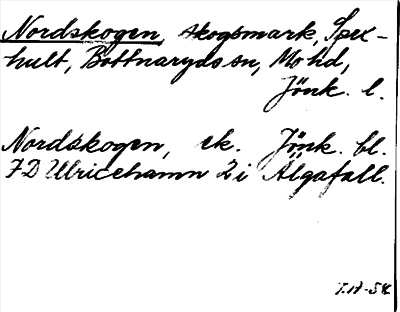 Nordskogen, skogsmark, Spex-
hult, Bottnaryds sn, Mo hd,
Jönk. l.
Nordskogen, ek. Jönk. bl.
7D Ulricehamn 2 i Älgafall.
T.H-58